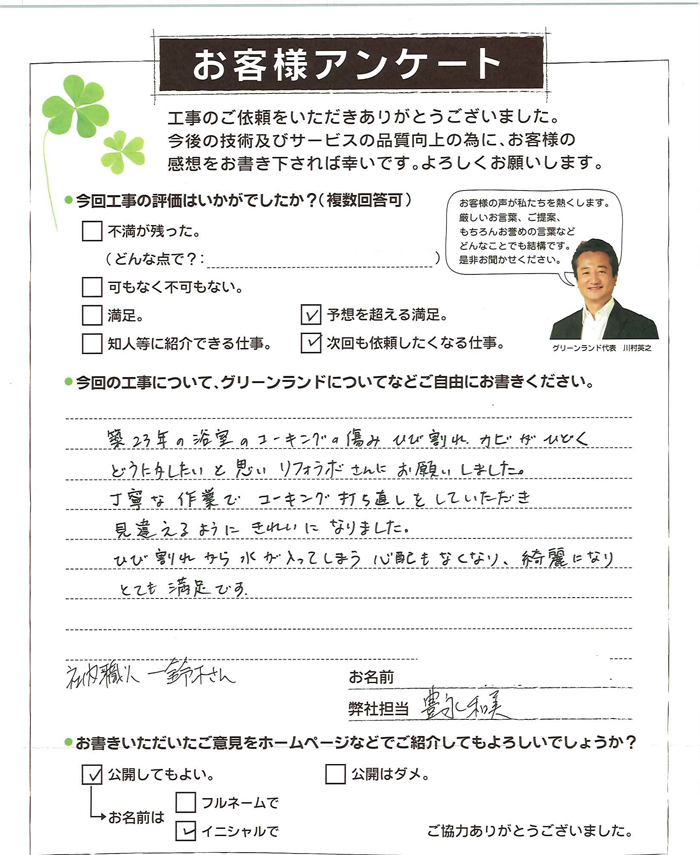 お客様アンケート
工事のご依頼をいただきありがとうございました。
今後の技術及びサービスの品質向上の為に、お客様の
感想をお書き下されば幸いです。よろしくお願いします。
今回工事の評価はいかがでしたか?(複数回答可)
お客様の声が私たちを熱くします。
厳しいお言葉、ご提案、
もちろんお誉めの言葉など
どんなことでも結構です。
是非お聞かせください。
不満が残った。
(どんな点で?: )
可もなく不可もない。
満足。 予想を超える満足。
知人等に紹介できる仕事。 次回も依頼したくなる仕事。
グリーンランド代表 川村英之
今回の工事について、グリーンランドについてなどご自由にお書きください。
築23年の浴室のコーキングの傷み ひび割れ、カビがひどく
どうにかしたいと思い リフォラボさんにお願いしました。
丁寧な作業で コーキング打ち直しをしていただき
見違えるように きれいに なりました。
ひび割れから水が入ってしまう心配もなくなり、綺麗になり
とても満足です。
社内職人 鈴木さん
お名前
弊社担当 豊永 和美
お書きいただいたご意見をホームページなどでご紹介してもよろしいでしょうか?
公開してもよい。 公開はダメ。
お名前は フルネームで
イニシャルで
ご協力ありがとうございました。